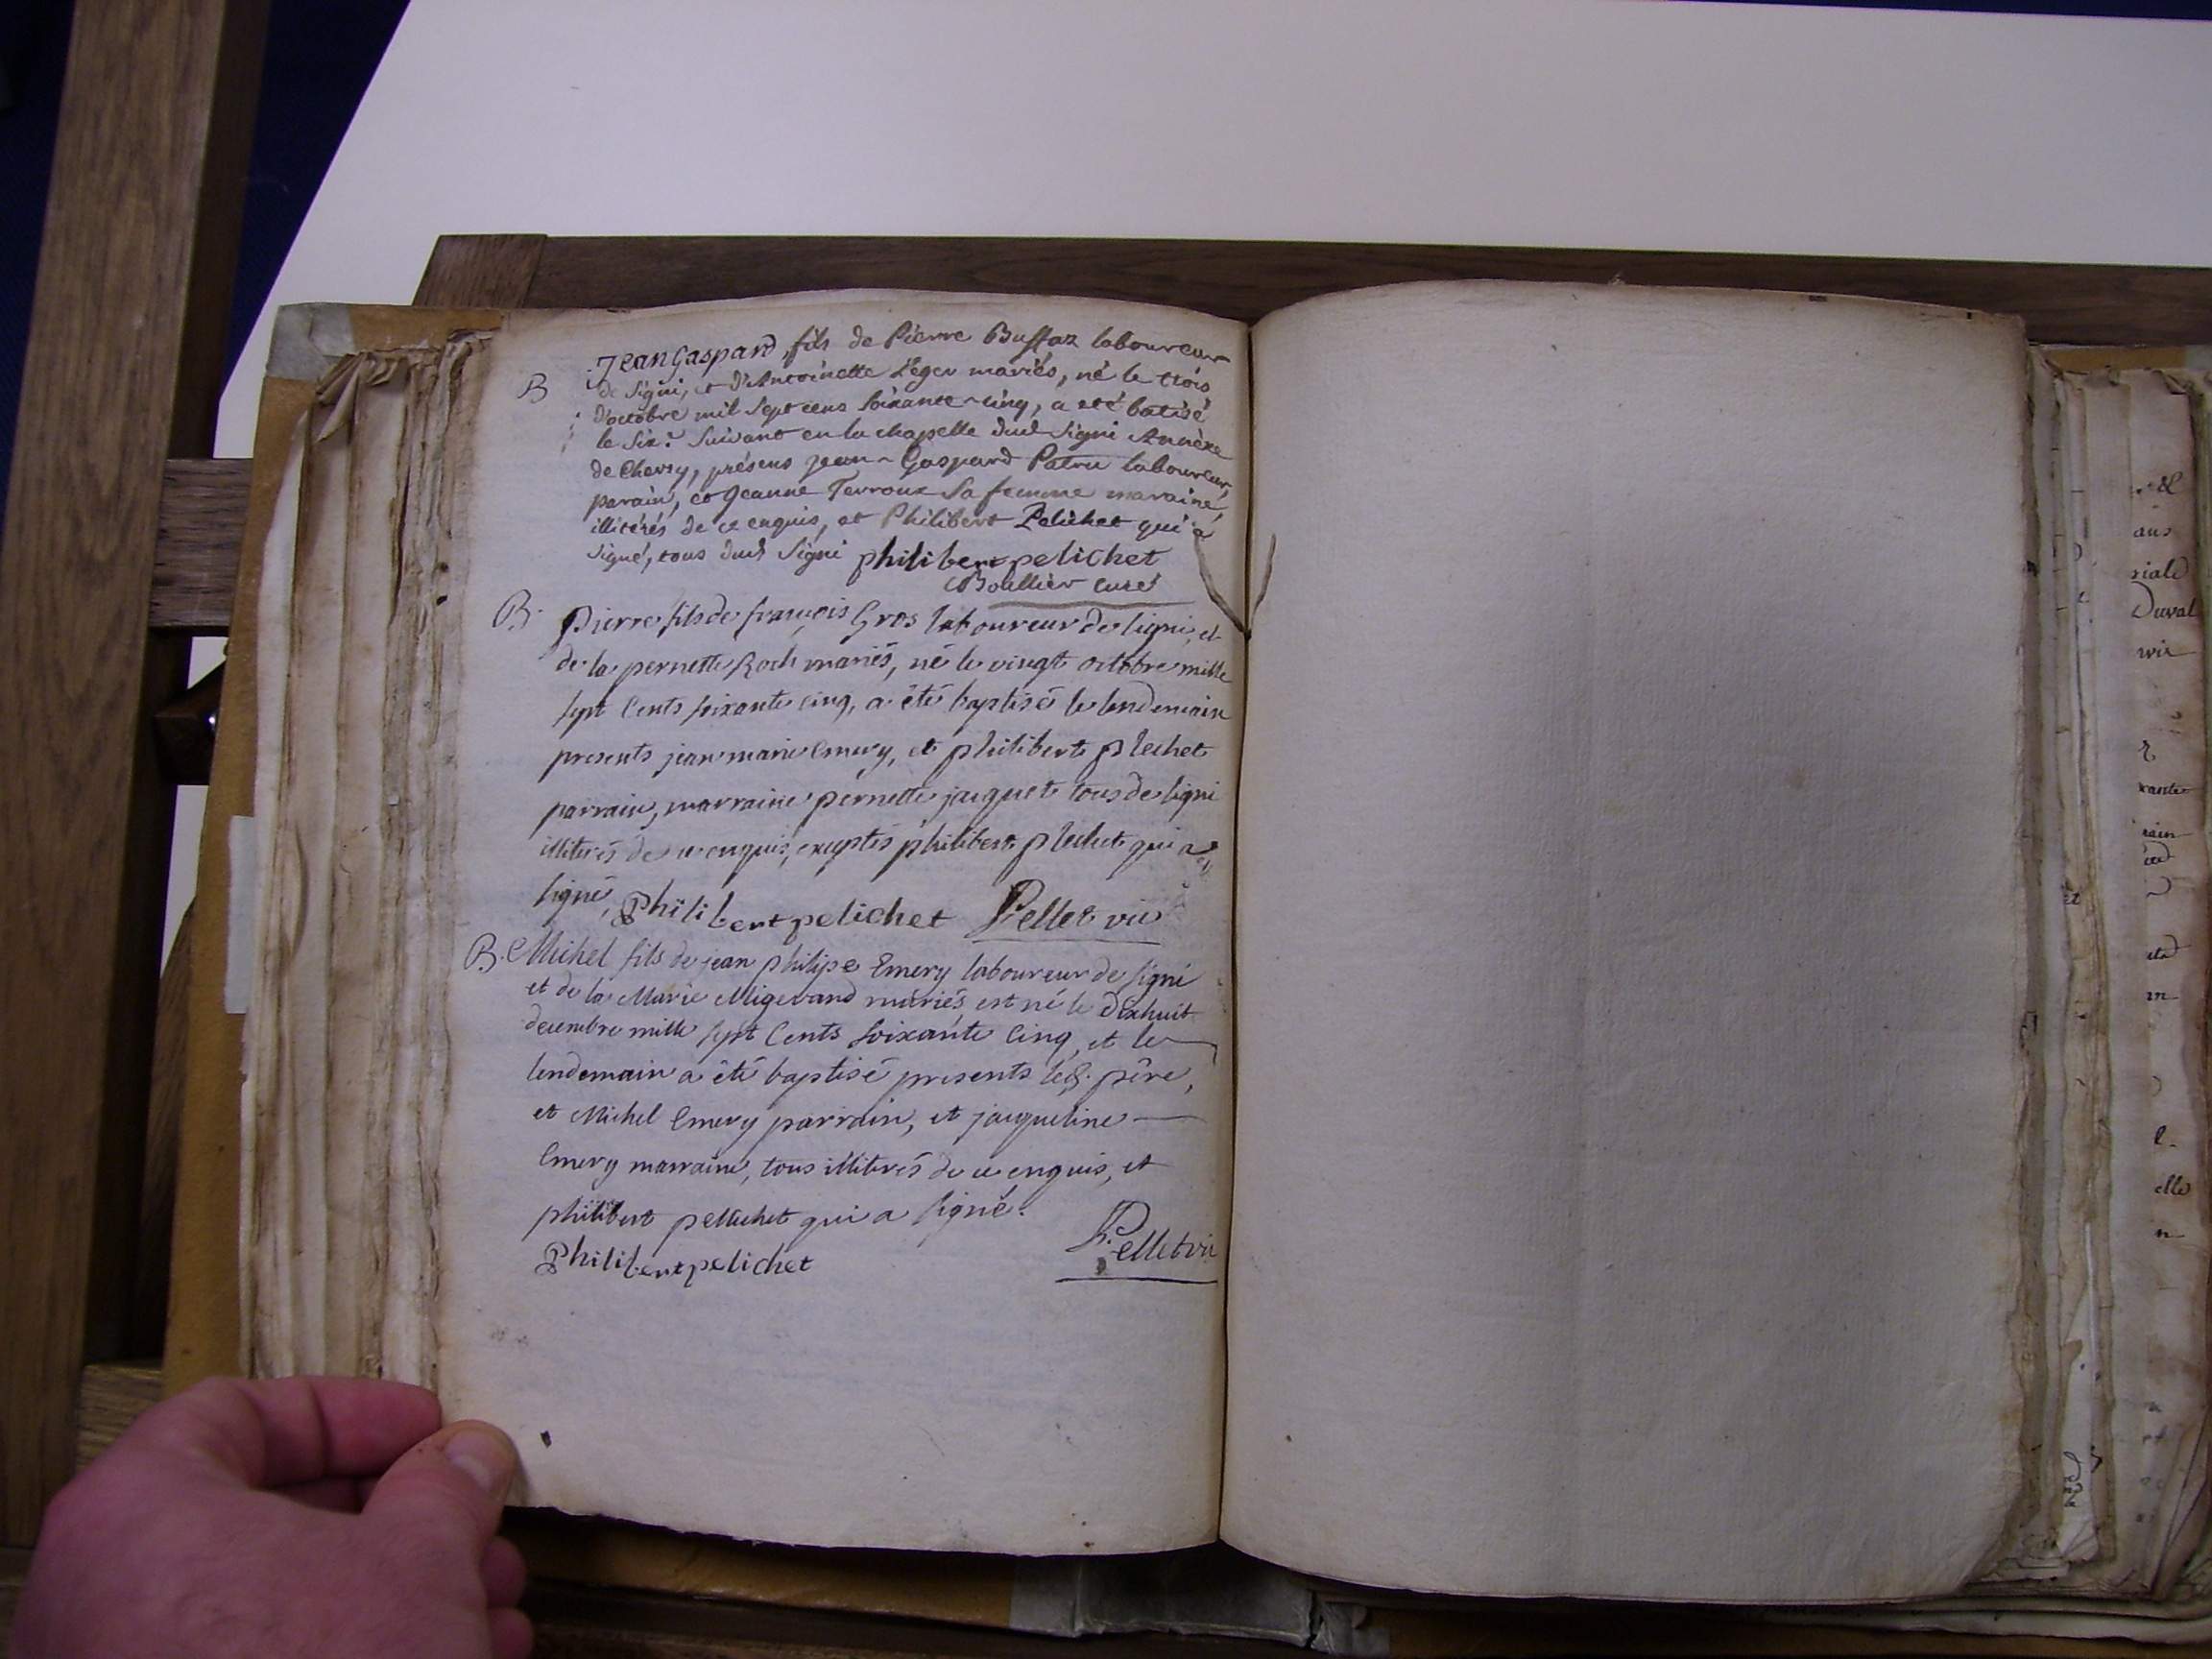 B
Jean Gaspard, fils de Pierre Buffaz laboureur
de Signi, et d'Antoinette Léger mariés, né le trois
d'octobre mil Sept cens Soixante-cinq, a eté batisé
le Six: Suivant en la chapelle dud Signi Annèxe
de Chevry, présens Jean-Gaspard Patru laboureur,
parain, et Jeanne Terroux Sa femme maraine,
illitérés de ce enquis, et Philibert Pelichet qui a
signé, tous dud Signi philibert pelichet
Boullier curé
B.
Pierre fils de françois Gros laboureur de Signi, et
de la pernette Roch mariés, né le vingt octobre mille
sept Cents soixante cinq, a été baptisé le lendemain
presents jean marie Emery, et philibert plechet
parrain, marraine pernette jacquet tous de Signi
illiterés de ce enquis, exceptés philibert plechet qui a
signé, Philibert pelichet Pellet vic
B. Michel fils de jean philipe Emery laboureur de Signi
et de la Marie Migerand mariés, est né le dixhuit
decembre mille sept Cents Soixante Cinq, et le
lendemain a été baptisé presents led. père,
et Michel Emery parrain, et jacqueline
Emery marraine, tous illiterés de ce enquis, et
philibert pellichet qui a signé.
Philibert pelichet Pellet vic
ans
riale
Duval
vic
elle